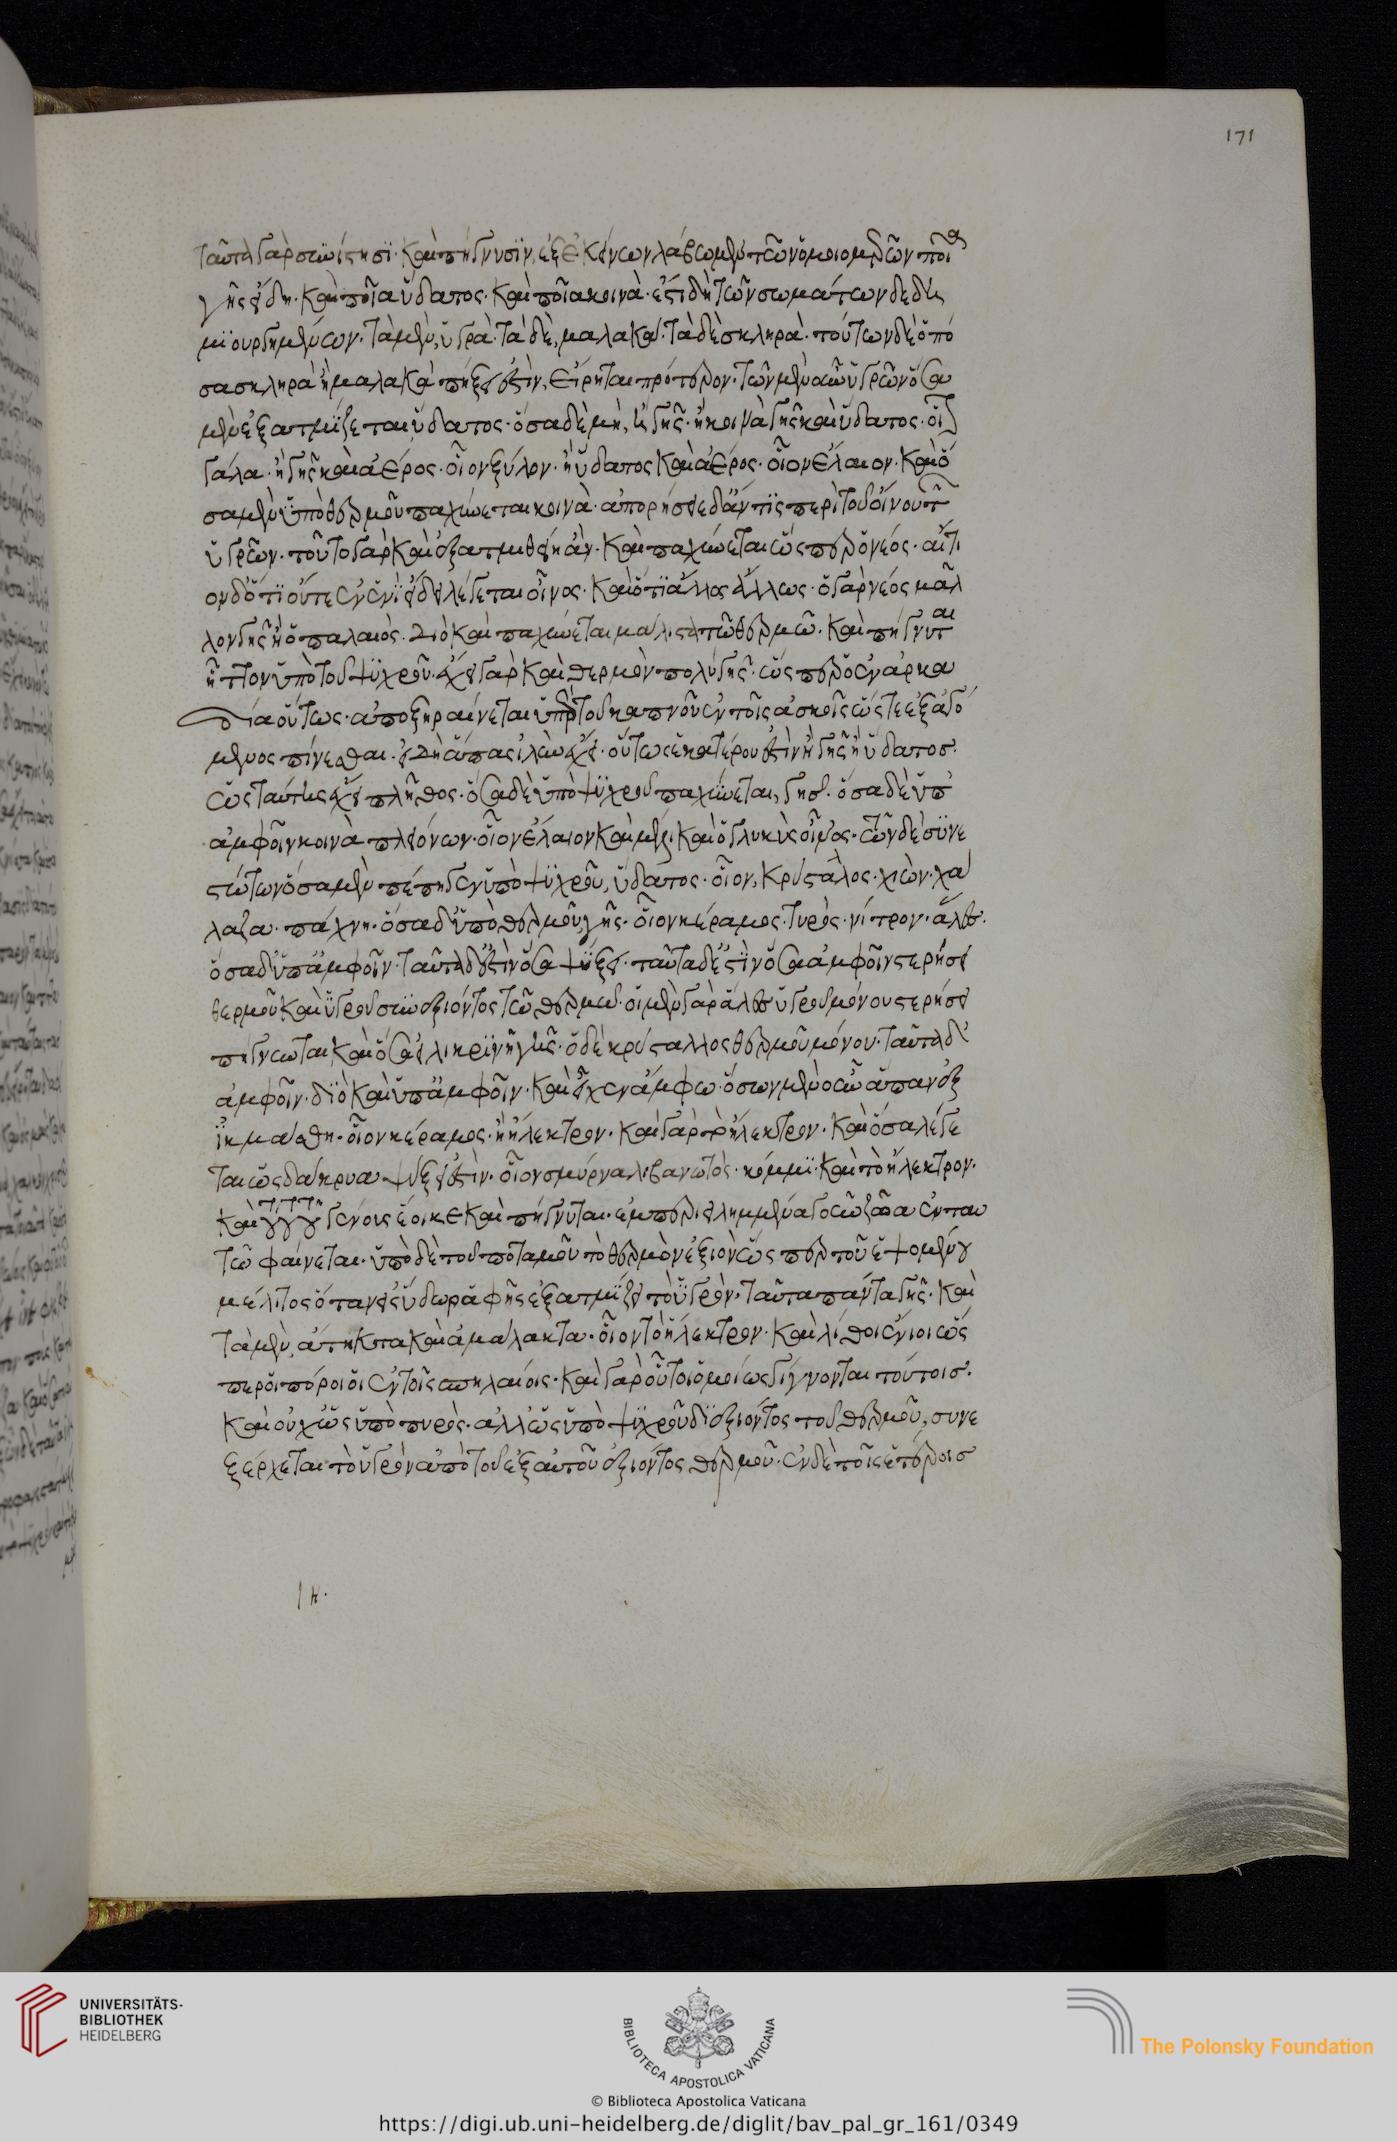 171
ταῦτα γὰρ συνίστησι καὶ πήγνυσιν, ἐξ ἐκείνων λάβωμεν τῶν ὁμοιομερῶν ποῖα
γῆς εἴδη· καὶ ποῖα ὕδατος· καὶ ποῖα κοινὰ· ἔστι δὴ τῶν σωμάτων δεδη
μιουργημένων· τὰ μὲν, ὑγρὰ· τὰ δὲ, μαλακά· τὰ δὲ σκληρὰ· τούτων δὲ ὁπό
σα σκληρὰ ἢ μαλακὰ πήξει ἐστὶν, εἴρηται πρότερον· τῶν μὲν οὖν ὑγρῶν ὅσα
μὲν ἐξατμίζεται ὕδατος· ὅσα δὲ μὴ, ἢ γῆς· ἢ κοινὰ γῆς καὶ ὕδατος· οἷον
γάλα· ἢ γῆς καὶ ἀέρος· οἷον ξύλον· ἢ ὕδατος καὶ ἀέρος· οἷον ἔλαιον· καὶ ὅ
σα μὲν ὑπὸ θερμοῦ παχύνεται κοινὰ· ἀπορήσειε δἄν τις περὶ τοῦ οἴνου τῶν
ὑγρῶν· τοῦτο γὰρ καὶ ἐξατμισθείη ἂν· καὶ παχύνεται ὥσπερ ὁ νέος· αἴτι
ον δὅτι οὔτε ἓν ἑνὶ εἴδει λέγεται οἶνος· καὶ ὅτι ἄλλος ἄλλως· ὁ γὰρ νέος μᾶλ
λον γῆς ἢ ὁ παλαιός· διὸ καὶ παχύνεται μάλιστα τῶ θερμῶ· καὶ πήγνυται
ἧττον ὑπὸ τοῦ ψυχροῦ· ἔχει γὰρ καὶ θερμὸν πολὺ γῆς· ὥσπερ ὁ ἐν ἀρκα
δία οὕτως· ἀποξηραίνεται ὑπὸ τοῦ καπνοῦ ἐν τοῖς ἀσκοῖς ὥστε ἐξαδό
μενος πίνεσθαι· εἰ δὴ ἅπας ἰλὺν ἔχει· οὕτως ἑκατέρου ἐστὶν ἢ γῆς ἢ ὕδατος·
ὡς ταύτης ἔχει πλῆθος· ὅσα δὲ ὑπὸ ψυχροῦ παχύνεται, γῆς· ὅσα δὲ ὑπ
ἀμφοῖν κοινὰ πλειόνων· οἷον ἔλαιον καὶ μέλι· καὶ ὁ γλυκὺς οἶνος· τῶν δὲ συνε
στώτων ὅσα μὲν πέπηγεν ὑπὸ ψυχροῦ, ὕδατος· οἷον, κρύσταλος· χιὼν· χά
λαζα· πάχνη· ὅσα δὑπὸ θερμοῦ γῆς· οἷον κέραμος· τυρὸς· νίτρον· ἅλες·
ὅσα δὑπ ἀμφοῖν· ταῦτα δἐστὶν ὅσα ψύξει· ταῦτα δ ἐστὶν ὅσα ἀμφοῖν στερήσει
θερμοῦ καὶ ὑγροῦ συνεξιόντος τῶ θερμῶ· οἱ μὲν γὰρ ἅλες ὑγροῦ μόνου στερήσει
πήγνυται καὶ ὅσα εἰλικρινῆ γῆς· ὁ δὲ κρύσταλλος θερμοῦ μόνου· ταῦτα δ
ἀμφοῖν· διὸ καὶ ὑπ ἀμφοῖν· καὶ εἶχεν ἄμφω· ὅσων μὲν οὖν ἅπαν ἐξ
ικμάσθη· οἷον κέραμος· ἢ ἤλεκτρον· καὶ γὰρ τὸ ἤλεκτρον· καὶ ὅσα λέγε
ται ὡς δάκρυα ψύξει ἐστὶν· οἷον σμύρνα λιβανωτὸς· κόμμι· καὶ τὸ ἤλεκτρον·
καὶ τοῦ γένους ἔοικε καὶ πήγνυται· ἐμπεριειλημμένα γοῦν ζῶα ἐν αυ
τῶ φαίνεται· ὑπὸ δὲ τοῦ ποταμοῦ τὸ θερμὸν ἐξιὸν ὥσπερ τοῦ ἑψομένου
μέλιτος ὅταν εἰς ὕδωρ ἀφῆς ἐξατμίζει τὸ ὑγρὸν· ταῦτα πάντα γῆς· καὶ
τὰ μὲν, ἄτηκτα καὶ ἀμάλακτα· οἷον τὸ ἤλεκτρον· καὶ λίθοι ἔνιοι ὥς
περ οἱ πόροι οἱ ἐν τοῖς σπηλαίοις· καὶ γὰρ οὗτοι ὁμοίως γίγνονται τούτοις·
καὶ οὐχ ὡς ὑπὸ πυρὸς· ἀλλ ὡς ὑπὸ ψυχροῦ διεξιόντος τοῦ θερμοῦ, συνε
ξέρχεται τὸ ὑγρὸν ἀπὸ τοῦ ἐξ αὐτοῦ ἐξιόντος θερμοῦ· ἐν δὲ τοῖς ἑτέροις
ιη·
UNIVERSITÄTS-
BIBLIOTHEK
HEIDELBERG
BIBLIOTECA APOSTOLICA VATICANA
© Biblioteca Apostolica Vaticana
The Polonsky Foundation
https://digi.ub.uni-heidelberg.de/diglit/bav_pal_gr_161/0349